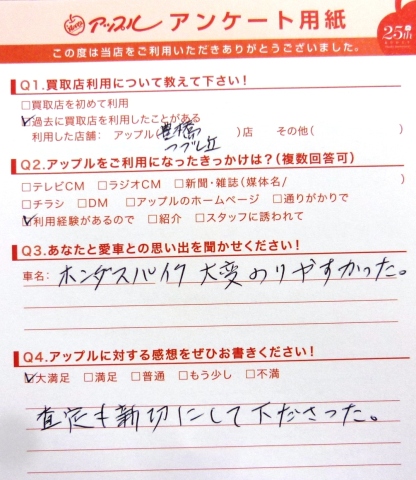 アップル アンケート用紙
25th
この度は当店をご利用いただきありがとうございました。
Q1.買取店利用について教えて下さい!
□買取店を初めて利用
☑過去に買取店を利用したことがある
利用した店舗: アップル(豊橋つつじが丘)店 その他( )
Q2.アップルをご利用になったきっかけは?(複数回答可)
□テレビCM □ラジオCM □新聞・雑誌(媒体名/ )
□チラシ □DM □アップルのホームページ □通りがかりで
☑利用経験があるので □紹介 □スタッフに誘われて
Q3.あなたと愛車との思い出を聞かせください!
車名: ホンダスパイク 大変のりやすかった。
Q4.アップルに対する感想をぜひお書きください!
☑大満足 □満足 □普通 □もう少し □不満
査定も新切にして下ださった。